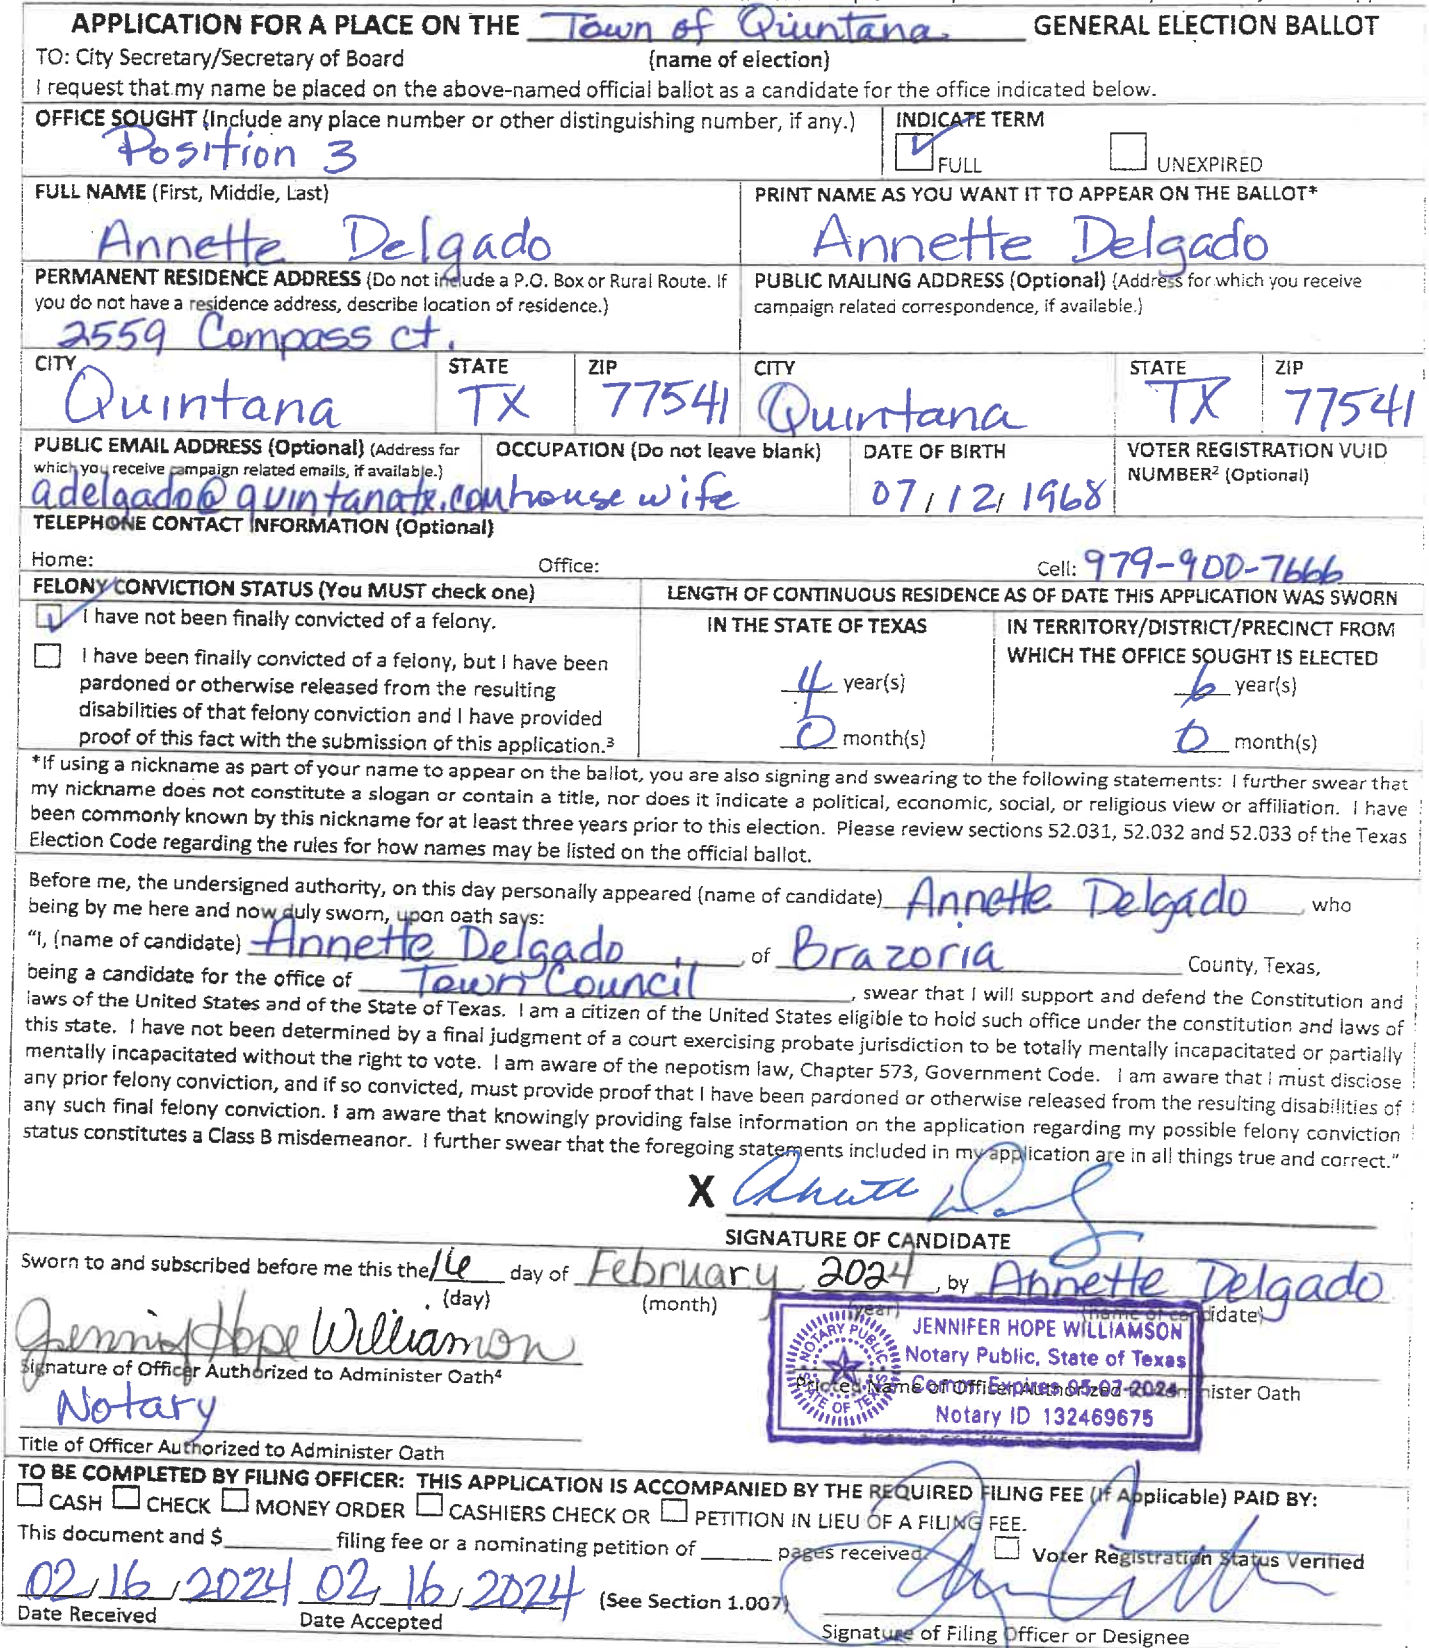 APPLICATION FOR A PLACE ON THE Town of Quintana GENERAL ELECTION BALLOT
TO: City Secretary/Secretary of Board (name of election)
I request that my name be placed on the above-named official ballot as a candidate for the office indicated below.
OFFICE SOUGHT (Include any place number or other distinguishing number, if any.)
Position 3
INDICATE TERM
FULL UNEXPIRED
FULL NAME (First, Middle, Last)
Annette Delgado
PRINT NAME AS YOU WANT IT TO APPEAR ON THE BALLOT*
Annette Delgado
PERMANENT RESIDENCE ADDRESS (Do not include a P.O. Box or Rural Route. If
you do not have a residence address, describe location of residence.)
2559 Compass ct.
PUBLIC MAILING ADDRESS (Optional) (Address for which you receive
campaign related correspondence, if available.)
CITY STATE ZIP CITY STATE ZIP
Quintana TX 77541 Quintana TX 77541
PUBLIC EMAIL ADDRESS (Optional) (Address for
which you receive campaign related emails, if available.)
adelgado@quintanatx.com
OCCUPATION (Do not leave blank)
house wife
DATE OF BIRTH
07/12/1968
VOTER REGISTRATION VUID
NUMBER² (Optional)
TELEPHONE CONTACT INFORMATION (Optional)
Home: Office: Cell: 979-900-7666
FELONY CONVICTION STATUS (You MUST check one)
I have not been finally convicted of a felony.
I have been finally convicted of a felony, but I have been
pardoned or otherwise released from the resulting
disabilities of that felony conviction and I have provided
proof of this fact with the submission of this application.³
LENGTH OF CONTINUOUS RESIDENCE AS OF DATE THIS APPLICATION WAS SWORN
IN THE STATE OF TEXAS
4 year(s)
0 month(s)
IN TERRITORY/DISTRICT/PRECINCT FROM
WHICH THE OFFICE SOUGHT IS ELECTED
6 year(s)
0 month(s)
*If using a nickname as part of your name to appear on the ballot, you are also signing and swearing to the following statements: I further swear that
my nickname does not constitute a slogan or contain a title, nor does it indicate a political, economic, social, or religious view or affiliation. I have
been commonly known by this nickname for at least three years prior to this election. Please review sections 52.031, 52.032 and 52.033 of the Texas
Election Code regarding the rules for how names may be listed on the official ballot.
Before me, the undersigned authority, on this day personally appeared (name of candidate) Annette Delgado who
being by me here and now duly sworn, upon oath says:
"I, (name of candidate) Annette Delgado, of Brazoria County, Texas,
being a candidate for the office of Town Council, swear that I will support and defend the Constitution and
laws of the United States and of the State of Texas. I am a citizen of the United States eligible to hold such office under the constitution and laws of
this state. I have not been determined by a final judgment of a court exercising probate jurisdiction to be totally mentally incapacitated or partially
mentally incapacitated without the right to vote. I am aware of the nepotism law, Chapter 573, Government Code. I am aware that I must disclose
any prior felony conviction, and if so convicted, must provide proof that I have been pardoned or otherwise released from the resulting disabilities of
any such final felony conviction. I am aware that knowingly providing false information on the application regarding my possible felony conviction
status constitutes a Class B misdemeanor. I further swear that the foregoing statements included in my application are in all things true and correct."
X
SIGNATURE OF CANDIDATE
Sworn to and subscribed before me this the 16 day of February, 2024, by Annette Delgado
(day) (month) (year) (name of candidate)
Jennifer Hope Williamson
Signature of Officer Authorized to Administer Oath⁴
Printed Name of Officer Authorized to Administer Oath
JENNIFER HOPE WILLIAMSON
Notary Public, State of Texas
Comm. Expires 05-07-2024
Notary ID 132469675
NOTARY PUBLIC
STATE OF TEXAS
Notary
Title of Officer Authorized to Administer Oath
TO BE COMPLETED BY FILING OFFICER: THIS APPLICATION IS ACCOMPANIED BY THE REQUIRED FILING FEE (If Applicable) PAID BY:
CASH CHECK MONEY ORDER CASHIERS CHECK OR PETITION IN LIEU OF A FILING FEE.
This document and $ filing fee or a nominating petition of pages received. Voter Registration Status Verified
02/16/2024 02/16/2024 (See Section 1.007)
Date Received Date Accepted Signature of Filing Officer or Designee